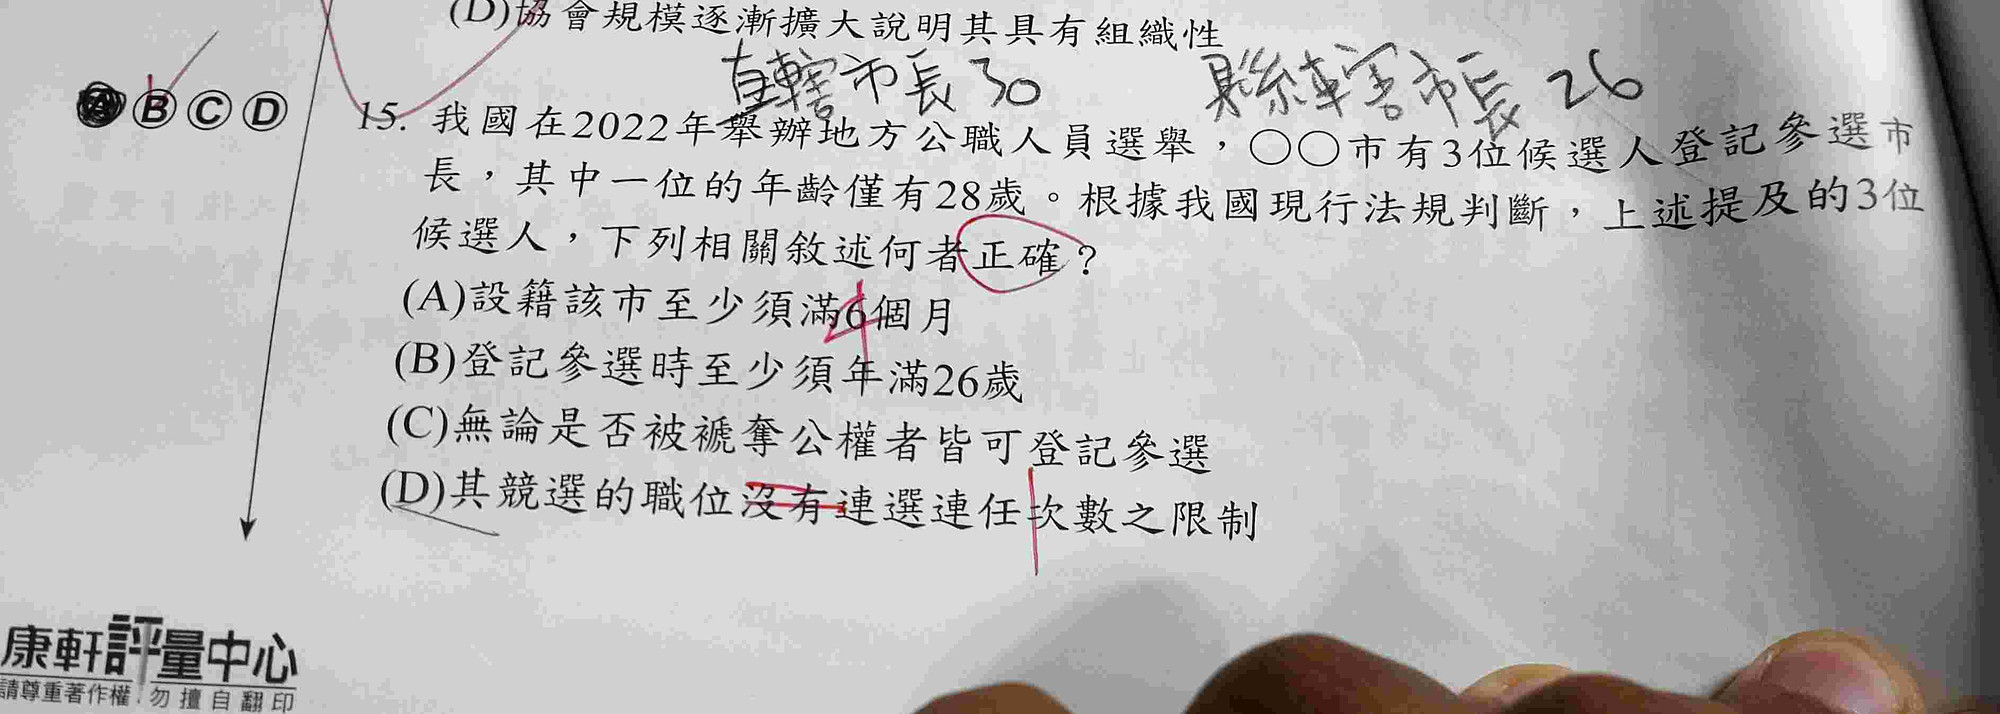 (D)協會規模逐漸擴大說明其具有組織性
直轄市長30 縣轄市長26
Ⓐ Ⓑ Ⓒ Ⓓ
15. 我國在2022年舉辦地方公職人員選舉，○○市有3位候選人登記參選市
長，其中一位的年齡僅有28歲。根據我國現行法規判斷，上述提及的3位
候選人，下列相關敘述何者正確？
(A)設籍該市至少須滿6個月
4
(B)登記參選時至少須年滿26歲
(C)無論是否被褫奪公權者皆可登記參選
(D)其競選的職位沒有連選連任次數之限制
康軒評量中心
請尊重著作權．勿擅自翻印